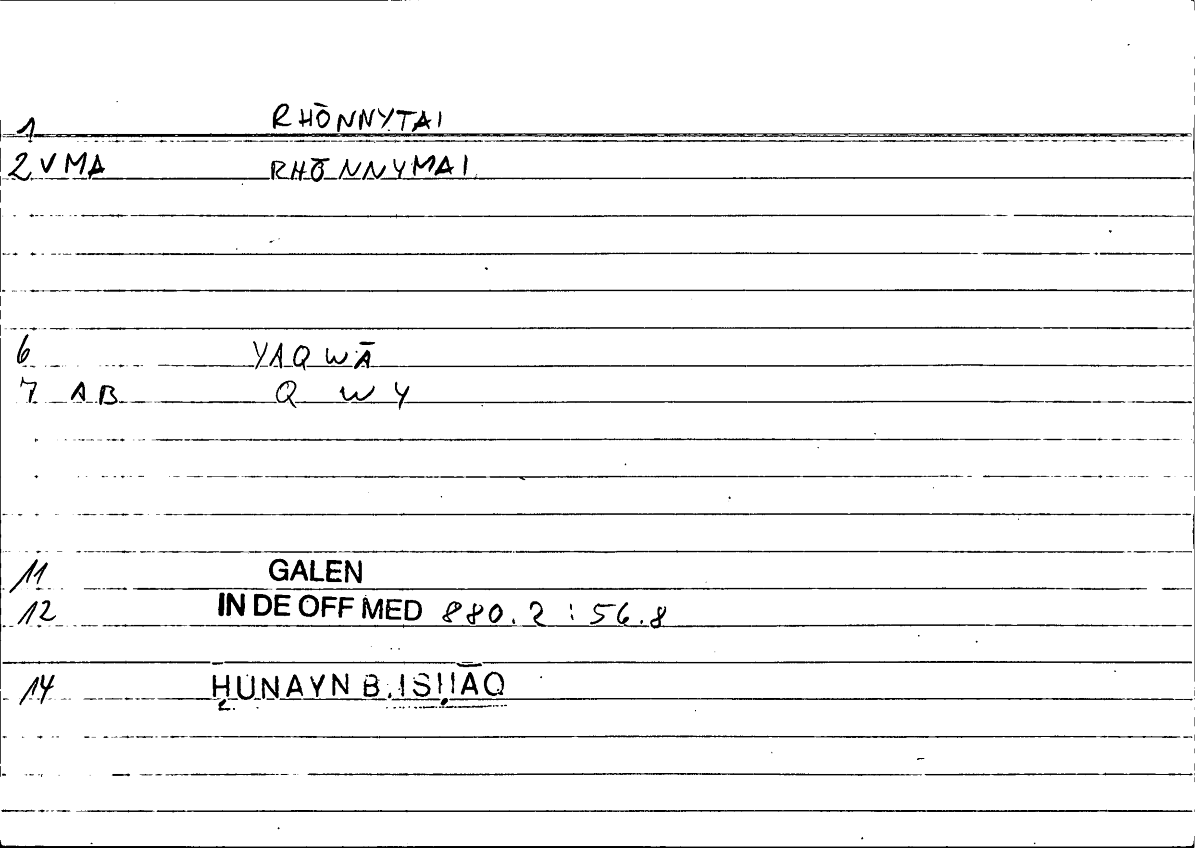 1 RHŌNNYTAI
2 VMA RHŌNNYMAI
6 YAQWĀ
7 AB Q W Y
11 GALEN
12 IN DE OFF MED 880.2 : 56.8
14 ḤUNAYN B. ISḤĀQ